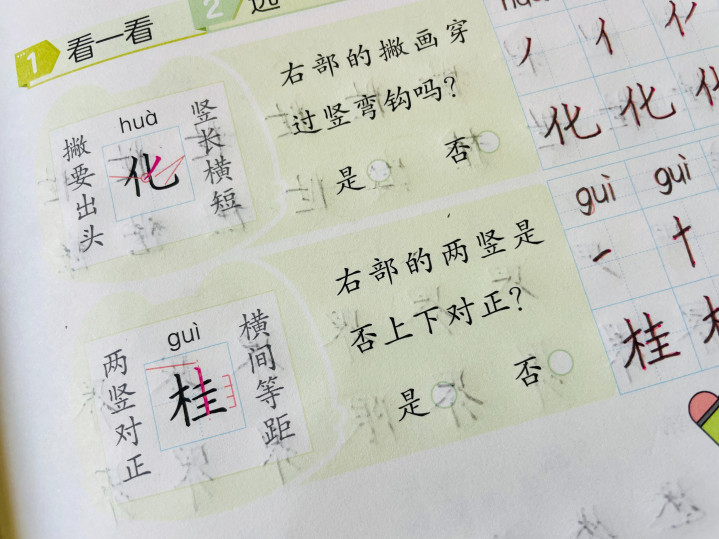 1 看一看
2
huà
撇要出头
化
竖长横短
右部的撇画穿
过竖弯钩吗?
是 否
化 化
guì
两竖对正
桂
横间等距
右部的两竖是
否上下对正?
是 否
guì guì
桂